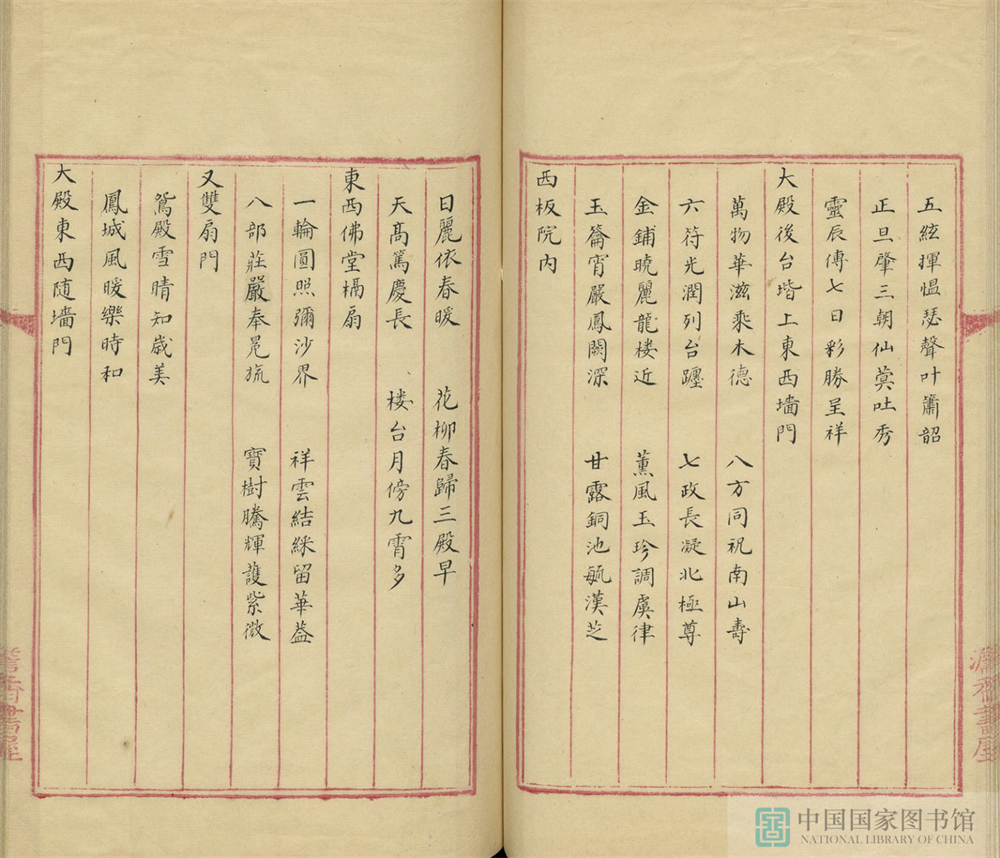 五絃揮愠瑟聲叶簫韶
正旦肇三朝仙蓂吐秀
靈辰傳七日彩勝呈祥
大殿後台堦上東西墻門
萬物華滋乘木德 八方同祝南山壽
六符光潤列台躔 七政長凝北極尊
金鋪曉麗龍楼近 薰風玉珍調虞律
玉籥宵嚴鳳闕深 甘露銅池毓漢芝
西板院内
日麗依春暖 花柳春歸三殿早
天髙篤慶長 楼台月傍九霄多
東西佛堂槅扇
一輪圓照彌沙界 祥雲結綵留華葢
八部莊嚴奉冕旒 寳樹騰輝護紫微
又雙扇門
鴛殿雪晴知歲美
鳳城風暖樂時和
大殿東西随墻門
中国国家图书馆
NATIONAL LIBRARY OF CHINA